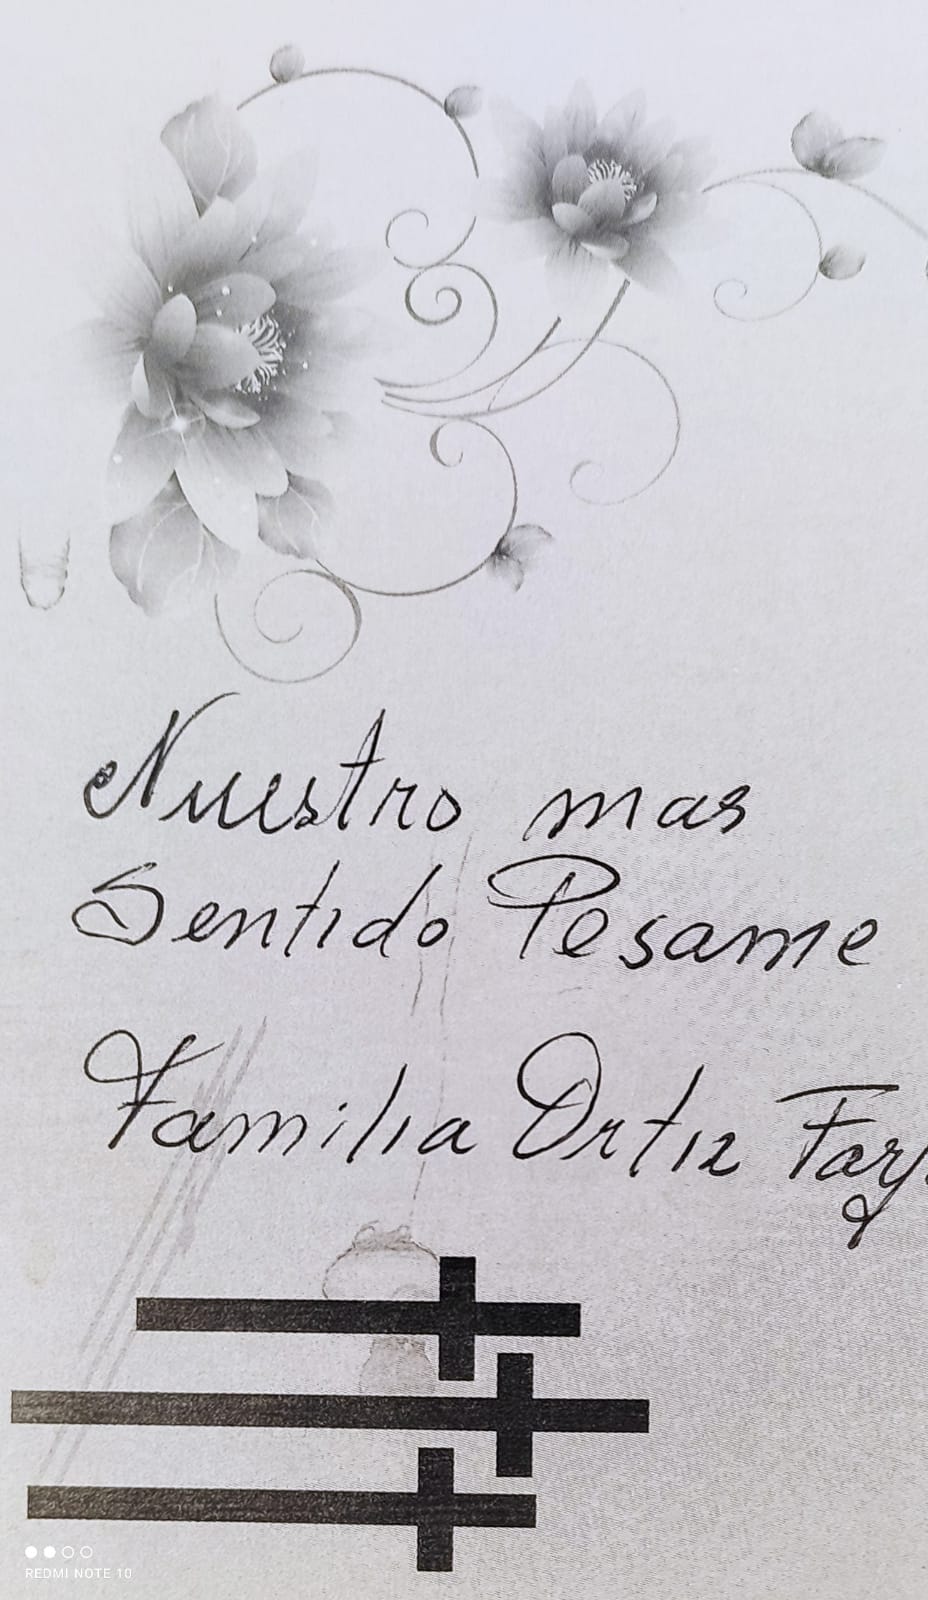 Nuestro mas
Sentido Pesame
Familia Ortiz
REDMI NOTE 10